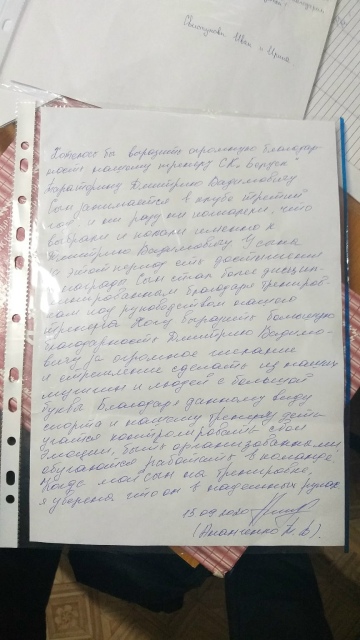 Светлукова Иван и Ирина
Хотелось бы выразить огромную благодар-
ность нашему тренеру СК "Боруса"
Дмитрию Вадимовичу
Сын занимается в клубе третий
год, и ни разу ни пожалели, что
выбрали и попали именно к
Дмитрию Вадимовичу. У сына
в этот период есть достижения
и награды. Сын стал более дисцип-
линированным благодаря трениров-
кам под руководством нашего
тренера. Хочу выразить большую
благодарность Дмитрию Вадимо-
вичу за огромное
и стремление сделать из наших
мужчин и людей с большой
буквы. Благодаря данному виду
спорта и нашему тренеру дети
учатся контролировать свои
эмоции, быть организованными,
обучаются работать в команде.
Когда мой сын на тренировке,
я уверена что он в надежных руках.
13.09.2020
(Ананченко Н.В).